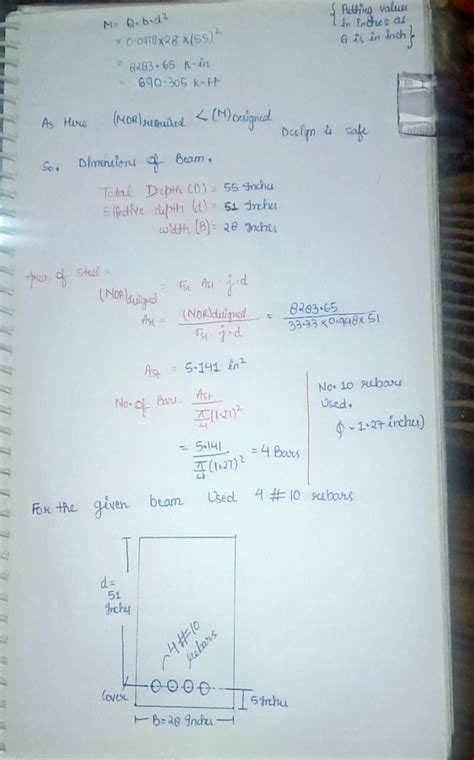 M = Q.b.d²
= 0.0978x28 x (55)²
= 8283.65 k-in
= 690.305 k-ft
{ Putting values
in inches as
Q is in inch }
As Here (MOR)required < (M)Designed
Design is safe
So, Dimensions of Beam,
Total Depth (D) = 55 Inches
Effective depth (d) = 51 Inches
width (B) = 28 Inches
Area of Steel =
(MOR)designed = σst Ast . j.d
Ast = (MOR)designed / σst . j.d = 8283.65 / 33.33 x 0.948 x 51
Ast = 5.141 in²
No. of Bars = Ast / π/4 (1.27)²
= 5.141 / π/4 (1.27)² = 4 Bars
No. 10 rebars
Used,
φ = 1.27 inches)
For the given beam Used 4 #10 rebars
d =
51
Inches
4 #10
rebars
Cover
5 Inches
B = 28 Inches